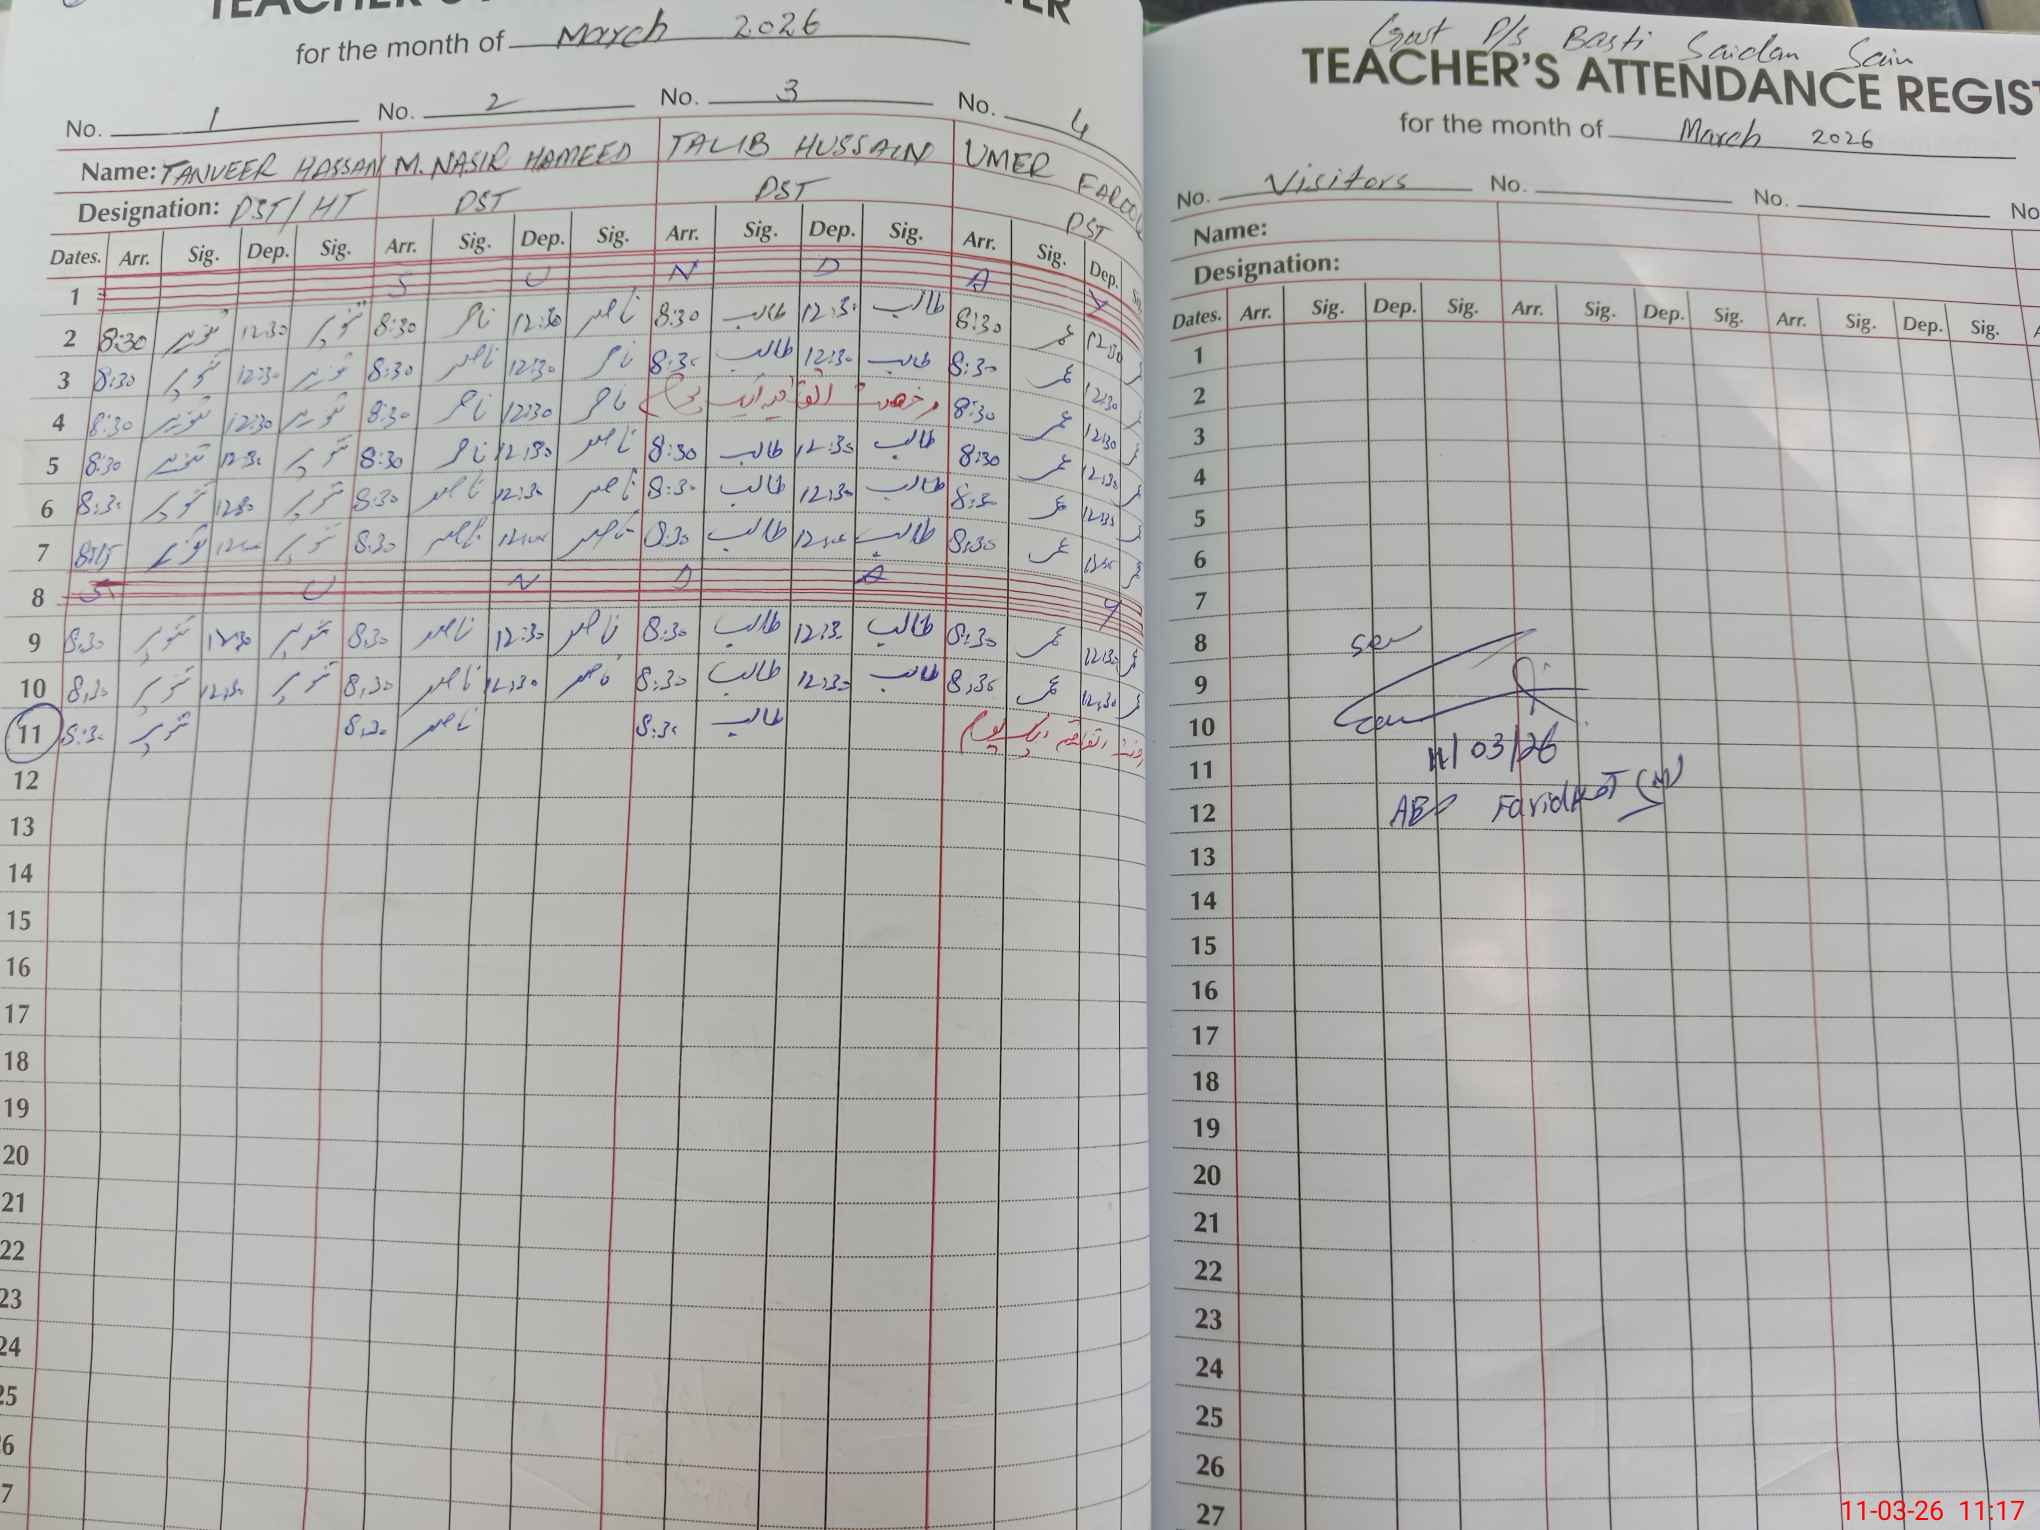 TEACHER'S
for the month of March 2026
No. 1 No. 2 No. 3 No. 4
Name: TANVEER HASSAN M. NASIR HAMEED TALIB HUSSAIN UMER FAROO
Designation: PST/HT PST PST PST
Dates. Arr. Sig. Dep. Sig. Arr. Sig. Dep. Sig. Arr. Sig. Dep. Sig. Arr. Sig. Dep.
1 S U N D A Y
2 8:30 تنویر 12:30 تنویر 8:30 ناصر 12:30 ناصر 8:30 طالب 12:30 طالب 8:30 عمر 12:30
3 8:30 تنویر 12:30 تنویر 8:30 ناصر 12:30 ناصر 8:30 طالب 12:30 طالب 8:30 عمر 12:30
4 8:30 تنویر 12:30 تنویر 8:30 ناصر 12:30 ناصر رخصت اتفاقیہ ایک یوم 8:30 عمر 12:30
5 8:30 تنویر 12:30 تنویر 8:30 ناصر 12:30 ناصر 8:30 طالب 12:30 طالب 8:30 عمر 12:30
6 8:30 تنویر 12:30 تنویر 8:30 ناصر 12:30 ناصر 8:30 طالب 12:30 طالب 8:30 عمر 12:30
7 8:15 تنویر تنویر 8:30 ناصر ناصر 8:30 طالب طالب 8:30 عمر
8 S U N D A Y
9 8:30 تنویر 12:30 تنویر 8:30 ناصر 12:30 ناصر 8:30 طالب 12:30 طالب 8:30 عمر 12:30
10 8:30 تنویر 12:30 تنویر 8:30 ناصر 12:30 ناصر 8:30 طالب 12:30 طالب 8:30 عمر 12:30
11 8:30 تنویر 8:30 ناصر 8:30 طالب اتفاقیہ ایک یوم
12
13
14
15
16
17
18
19
20
21
22
23
24
25
6
7
Govt P/S Basti Saidan Sain
TEACHER'S ATTENDANCE REGIST
for the month of March 2026
No. Visitors No. No. No
Name:
Designation:
Dates. Arr. Sig. Dep. Sig. Arr. Sig. Dep. Sig. Arr. Sig. Dep. Sig.
1
2
3
4
5
6
7
8
9
10
11 11/03/26
12 Faridkot (M)
13
14
15
16
17
18
19
20
21
22
23
24
25
26
27
11-03-26 11:17